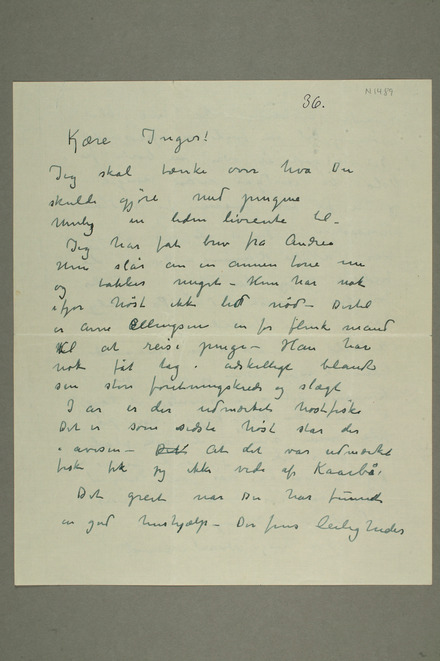 N 1489
36.
Kjære Inger!
Jeg skal tænke over hva Du
skulde gjøre med pengene
en liden livrente til –
Jeg har fåt brev fra Andrea
Hun slår an en annen tone nu
og takker meget – Hun har nok
ifjor høst ikke lid nød – Dertil
er Arne Ellingsen en for flink mand
til at reise penge – Han har
nok fåt lag i adskillige blandt
sin store forretningskreds og slægt
I år er der udmærket høstfiske
Det er som sidste høst står der
i avisen – At det var udmærket
fiske fik jeg ikke vide af Kaarbø,
Det greit når Du har funnet
en god hushjælp – Der fins leiligheder